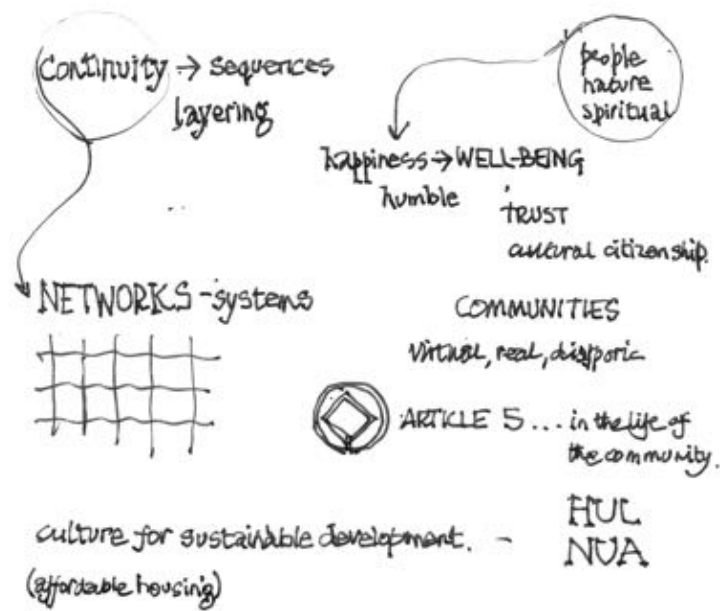 continuity → sequences
layering
people
nature
spiritual
happiness → WELL-BEING
humble
TRUST
cultural citizenship.
NETWORKS - systems
COMMUNITIES
virtual, real, diasporic
ARTICLE 5 ... in the life of
the community.
HUL
NUA
culture for sustainable development. -
(affordable housing)